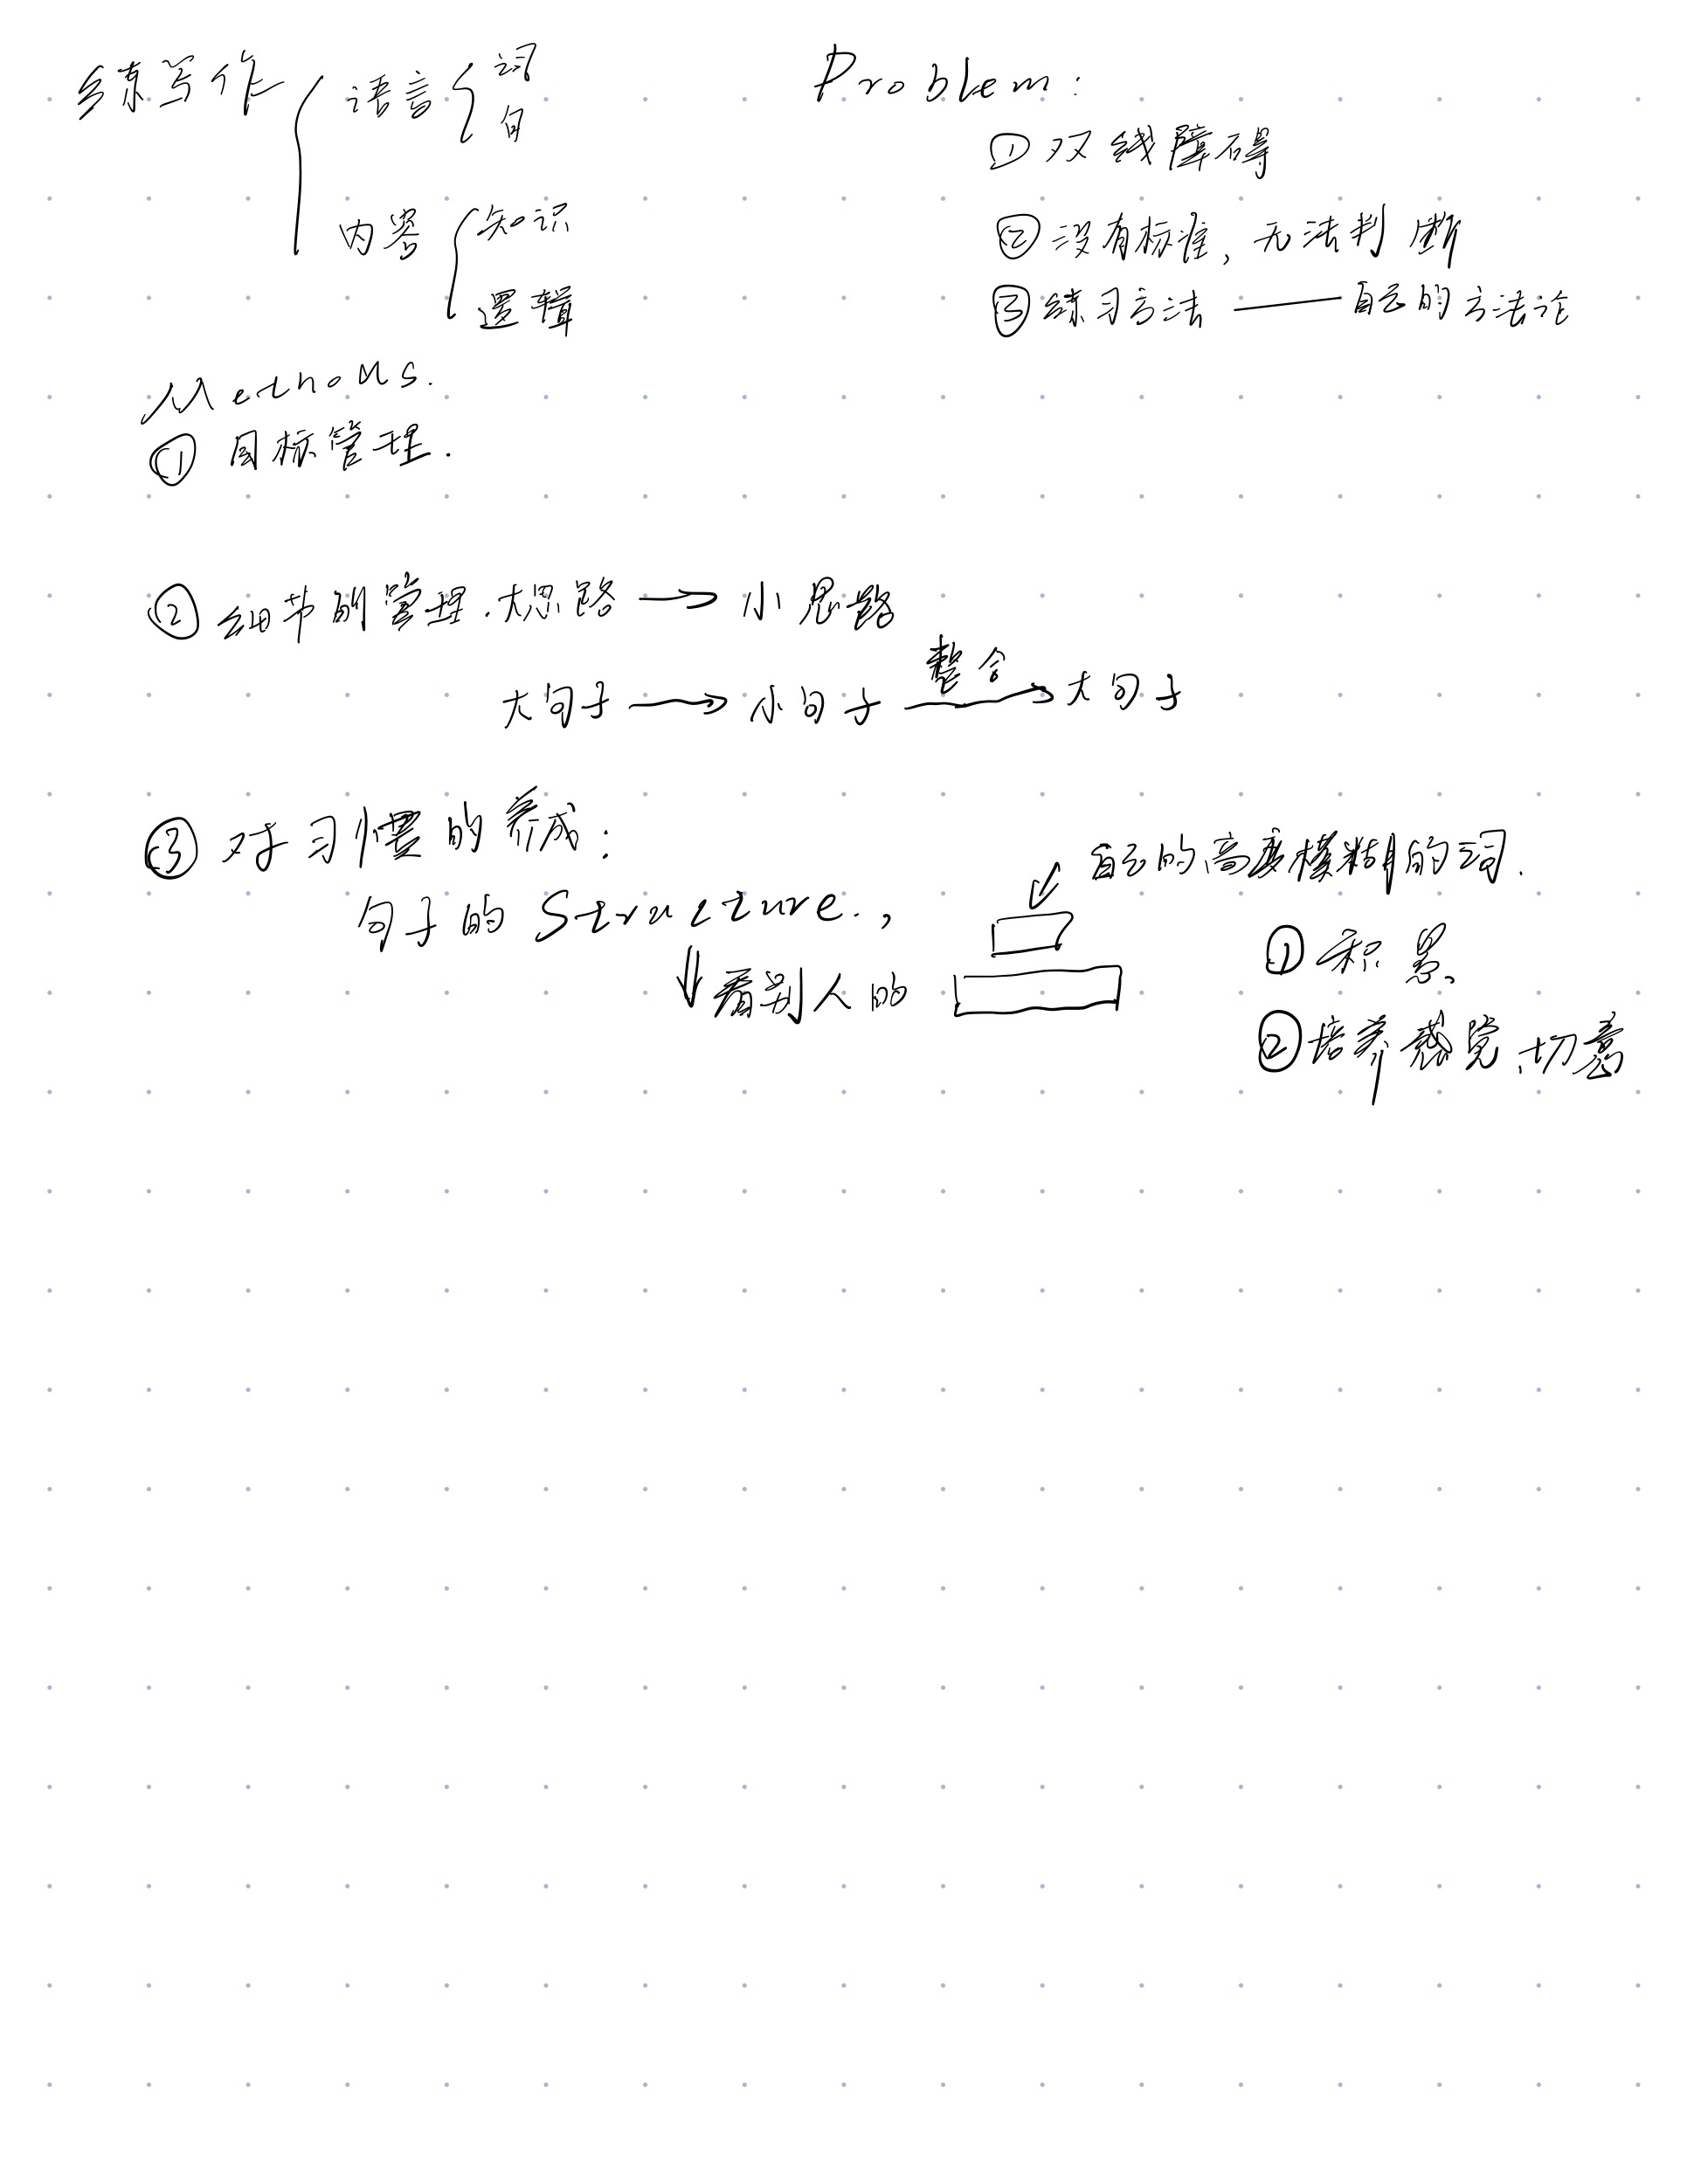 练写作 语言 词
句
内容 知识
逻辑
Problem:
① 双线障碍
② 没有标准, 无法判断
③ 练习方法 —— 自己的方法论
Methods.
① 目标管理.
② 细节的管理. 大思路 → 小思路
大句子 → 小句子 整合 → 大句子
③ 对习惯的养成:
句子的 Structure.,
看别人的
自己的高度模糊的词.
① 积累
② 培养感觉, 切意